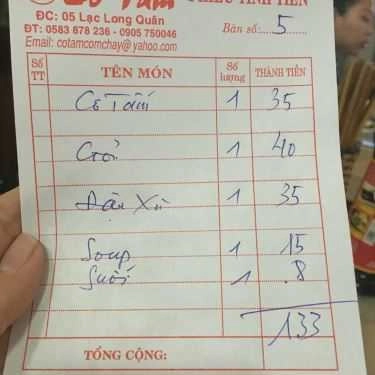 Cô Tấm PHIẾU TÍNH TIỀN
ĐC: 05 Lạc Long Quân
ĐT: 0583 678 236 - 0905 750046
Bàn số: 5
Email: cotamcomchay@yahoo.com
Số TT TÊN MÓN Số lượng THÀNH TIỀN
Cô Tấm 1 35
Gỏi 1 40
Đậu Xù 1 35
Soup 1 15
Suối 1 8
133
TỔNG CỘNG: